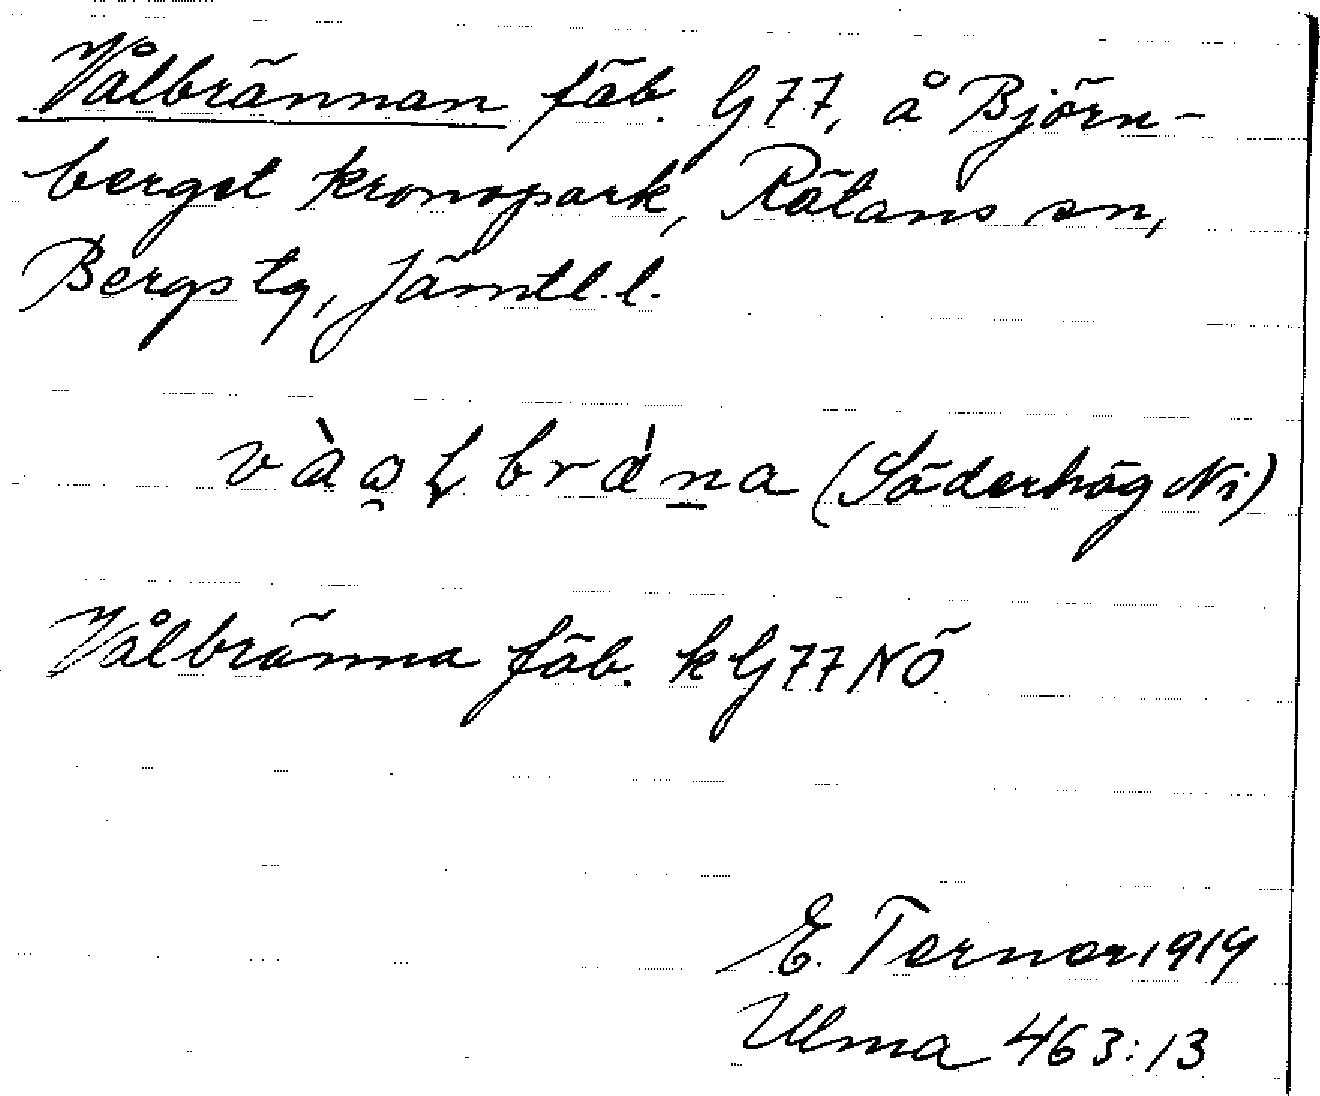 Vålbrännan fäb. G77, å Björn-
bergets kronopark, Rätans sn,
Bergs tg, Jämtl. l.
(Söderhög Ni)
Vålbränna fäb. k G77 NÖ
E. Terner 1919
Ulma 463:13